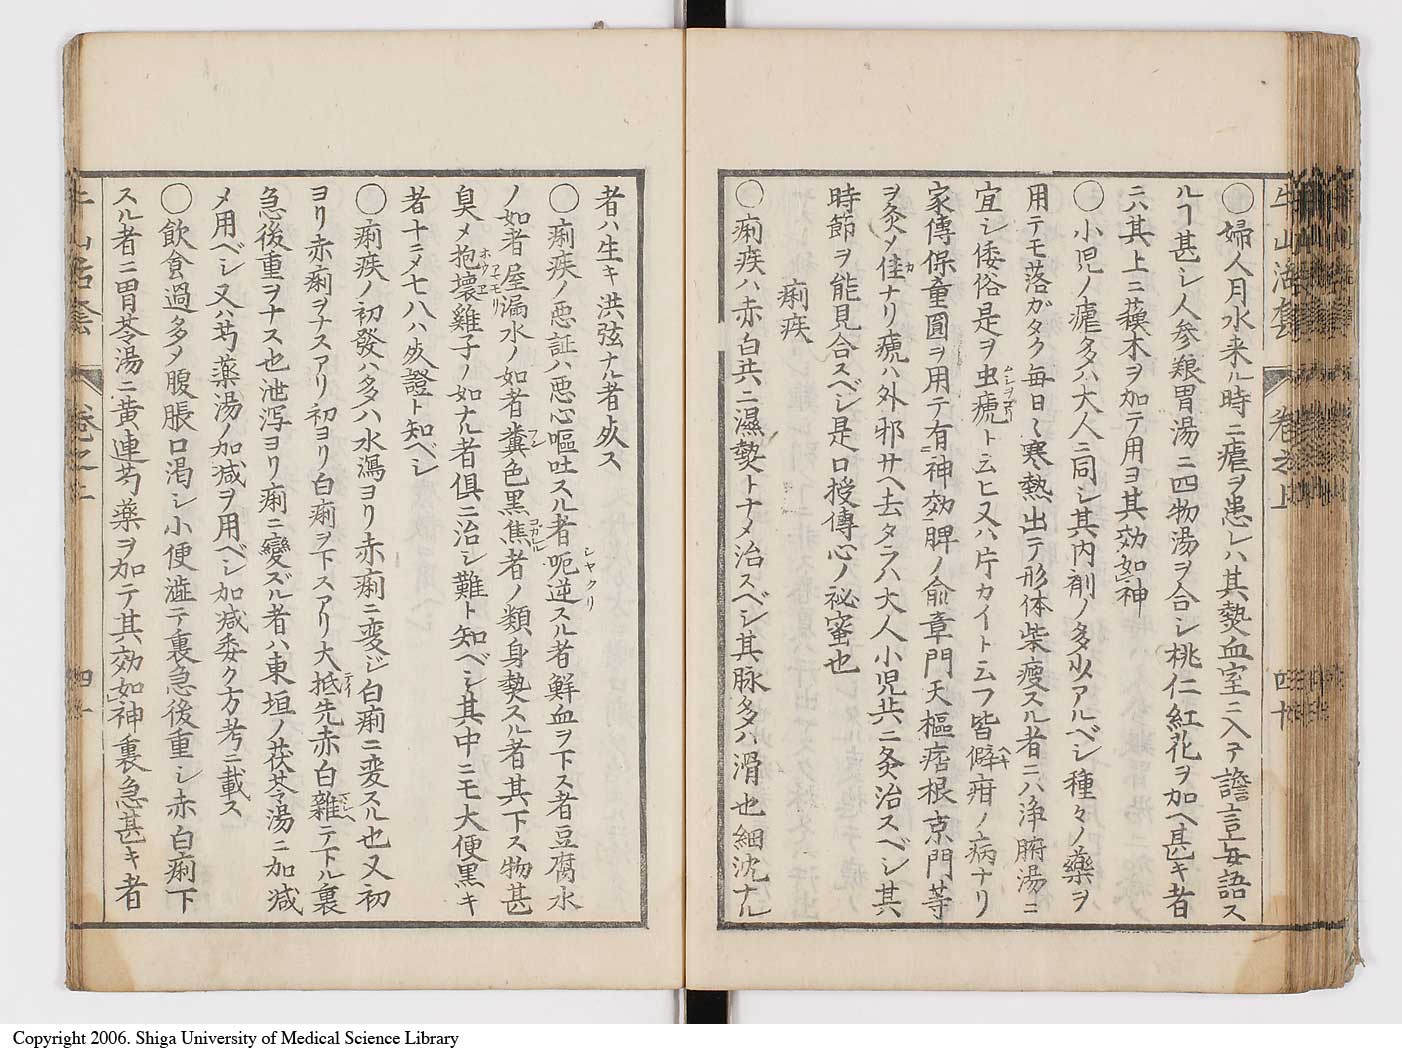 牛山活套 卷之上 四十
〇婦人月水来ル時ニ瘧ヲ患レハ其㷫血室ニ入テ譫言妄語ス
ルヿ甚シ人参養胃湯ニ四物湯ヲ合シ桃仁紅花ヲ加ヘ甚キ者
ニハ其上ニ蘓木ヲ加テ用ヨ其効如神
〇小児ノ瘧多ハ大人ニ同シ其内剤ノ多少アルベシ種々ノ藥ヲ
用テモ落ガタク毎日〱寒熱出テ形体柴瘦スル者ニハ浄腑湯ニ
宜シ倭俗是ヲ虫瘧ト云ヒ又ハ片カイト云フ皆癖疳ノ病ナリ
家傳保童圓ヲ用テ有神効脾ノ俞章門天樞痞根京門等
ヲ灸メ佳ナリ瘧ハ外邪サヘ去タラハ大人小児共ニ灸治スベシ其
時節ヲ能見合スベシ是口授傳心ノ祕蜜也
痢疾
〇痢疾ハ赤白共ニ濕㷫トナメ治スベシ其脉多ハ滑也細沈ナル
者ハ生キ洪弦ナル者ハ死ス
〇痢疾ノ悪証ハ悪心嘔吐スル者呃逆スル者鮮血ヲ下ス者豆腐水
ノ如者屋漏水ノ如者糞色黒焦者ノ類身㷫スル者其下ス物甚
臭メ抱壞雞子ノ如ナル者倶ニ治シ難ト知ベシ其中ニモ大便黒キ
者十ニメ七八ハ死證ト知ベシ
〇痢疾ノ初發ハ多ハ水瀉ヨリ赤痢ニ変ジ白痢ニ変スル也又初
ヨリ赤痢ヲナスアリ初ヨリ白痢ヲ下スアリ大抵先赤白雜テ下ル裏
急後重ヲナス也泄泻ヨリ痢ニ變ズル者ハ東垣ノ茯苓湯ニ加減
メ用ベシ又ハ芍藥湯ノ加減ヲ用ベシ加減委ク方考ニ載ス
〇飲食過多メ腹脹口渇シ小便澁テ裏急後重シ赤白痢下
スル者ニ胃苓湯ニ黄連芍藥ヲ加テ其効如神裏急甚キ者
Copyright 2006. Shiga University of Medical Science Library